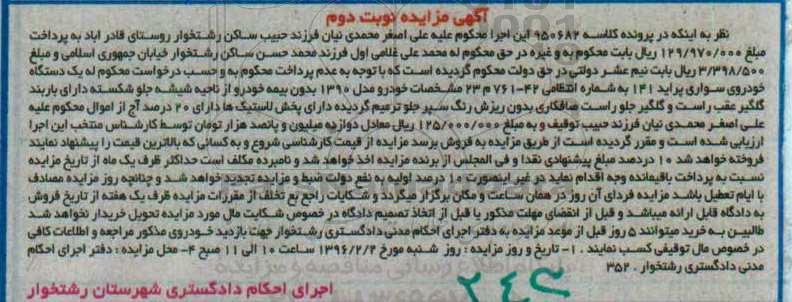 آگهی مزایده نوبت دوم
نظر به اینکه در پرونده کلاسه ۹۵۰۶۸۲ این اجرا محکوم علیه علی اصغر محمدی نیان فرزند حبیب ساکن رشتخوار روستای قادر اباد به پرداخت
مبلغ ۱۲۹/۹۷۰/۰۰۰ ریال بابت محکوم به و غیره در حق محکوم له محمد علی غلامی اول فرزند محمد حسن ساکن رشتخوار خیابان جمهوری اسلامی و مبلغ
۳/۳۹۸/۵۰۰ ریال بابت نیم عشر دولتی در حق دولت محکوم گردیده است که با توجه به عدم پرداخت محکوم به و حسب درخواست محکوم له یک دستگاه
خودروی سواری پراید ۱۴۱ به شماره انتظامی ۴۲-۷۶۱ م ۲۳ مشخصات خودرو مدل ۱۳۹۰ بدون بیمه خودرو از ناحیه شیشه جلو شکسته دارای باربند
گلگیر عقب راست و گلگیر جلو راست صافکاری بدون ریزش رنگ سپر جلو ترمیم گردیده دارای پخش لاستیک ها دارای ۲۰ درصد آج از اموال محکوم علیه
علی اصغر محمدی نیان فرزند حبیب توقیف و به مبلغ ۱۲۵/۰۰۰/۰۰۰ ریال معادل دوازده میلیون و پانصد هزار تومان توسط کارشناس منتخب این اجرا
ارزیابی شده است و مقرر گردیده است از طریق مزایده به فروش برسد مزایده از قیمت کارشناسی شروع و به کسانی که بالاترین قیمت را پیشنهاد نمایند
فروخته خواهد شد ۱۰ درصد مبلغ پیشنهادی نقدا و فی المجلس از برنده مزایده اخذ خواهد شد و نامبرده مکلف است حداکثر ظرف یک ماه از تاریخ مزایده
نسبت به پرداخت باقیمانده وجه اقدام نماید در غیر اینصورت ۱۰ درصد اولیه به نفع دولت ضبط و مزایده تجدید خواهد شد و چنانچه روز مزایده مصادف
با ایام تعطیل باشد مزایده فردای آن روز در همان ساعت و مکان برگزار میگردد و شکایات راجع به تخلف از مقررات مزایده ظرف یک هفته از تاریخ فروش
به دادگاه قابل ارائه میباشد و قبل از انقضای مهلت مذکور یا قبل از اتخاذ تصمیم دادگاه در خصوص شکایت مال مورد مزایده تحویل خریدار نخواهد شد
طالبین به خرید میتوانند ۵ روز قبل از موعد مزایده به دفتر اجرای احکام مدنی دادگستری رشتخوار جهت بازدید خودروی مذکور مراجعه و اطلاعات کافی
در خصوص مال توقیفی کسب نمایند . ۱- تاریخ و روز مزایده : روز شنبه مورخ ۱۳۹۶/۲/۲ ساعت ۱۰ الی ۱۱ صبح ۴- محل مزایده : دفتر اجرای احکام
مدنی دادگستری رشتخوار . ۳۵۲
اجرای احکام دادگستری شهرستان رشتخوار